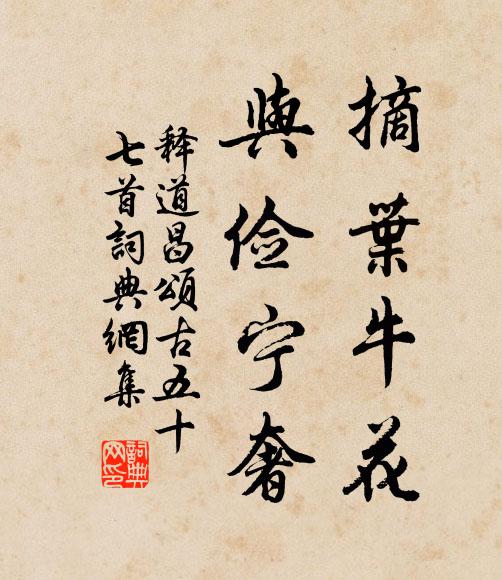 摘葉牛花
與儉宁奢
释道昌頌古五十
七首詞典網集
詞典网印